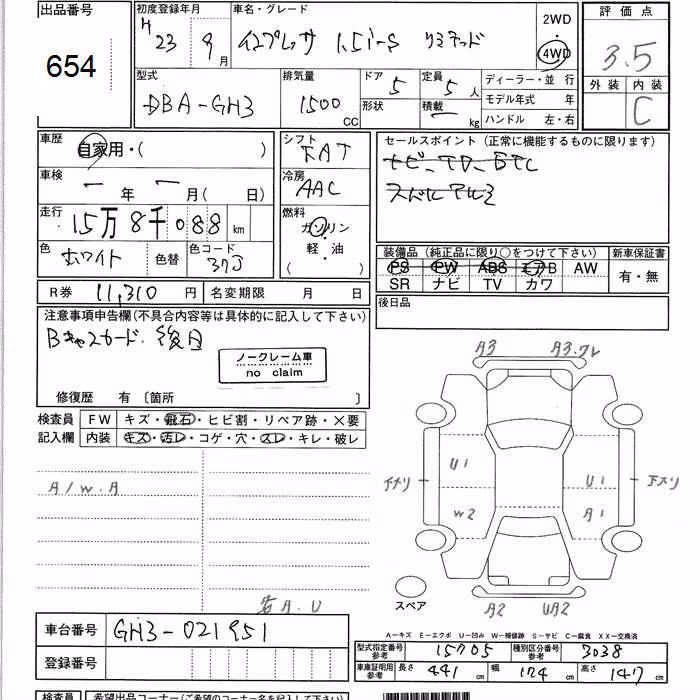 出品番号
654
初度登録年月
H 23 9月
車名・グレード
インプレッサ 1.5i-S リミテッド
2WD
4WD
評価点
3.5
外装 内装
C
型式
DBA-GH3
排気量
1500 CC
ドア 5
形状
定員 5人
積載 ー kg
ディーラー・並行
モデル年式 年
ハンドル 左・右
車歴
自家用・( )
車検
ー年 ー月( 日)
走行
15万8千088 km
色
ホワイト
色替
色コード
37J
シフト
FAT
冷房
AAC
燃料
ガソリン
軽・油
( )
セールスポイント(正常に機能するものに限ります)
ナビ、TV、ETC
装備品(純正品に限り○をつけて下さい)
新車保証書
PS PW ABS エアB AW
SR ナビ TV カワ
有・無
R券 11,310 円
名変期限 月 日
後日品
注意事項申告欄(不具合内容等は具体的に記入して下さい)
Bキャスカード 後日
ノークレーム車
no claim
修復歴 有〔箇所 〕
検査員
記入欄
FW キズ・飛石・ヒビ割・リペア跡・×要
内装 キズ・汚レ・コゲ・穴・スレ・キレ・破レ
A/W.A
A.U
A3
A3.ワレ
U1
W2
U1
A1
A2
UA2
スペア
A-キズ E-エクボ U-凹み W-補修跡 S-サビ C-腐食 XX-交換済
車台番号 GH3-021951
登録番号
型式指定番号 参考 15705
種別区分番号 参考 3038
車庫証明用 参考 長さ 441 cm 幅 174 cm 高さ 147 cm
検査員
希望出品コーナー(ご希望のコーナー名を記入して下さい)